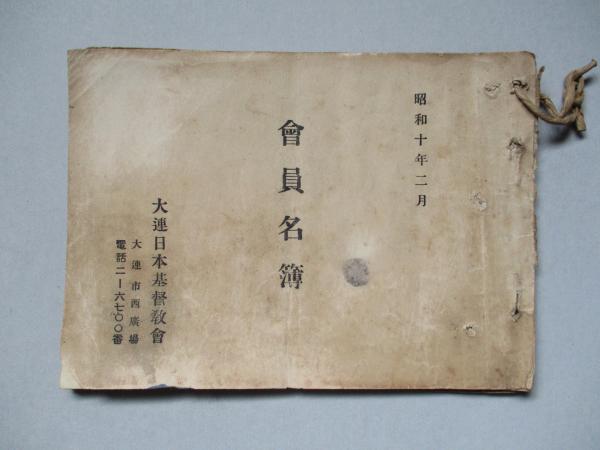 昭和十年二月
會員名簿
大連日本基督教會
大連市西廣場
電話二一六七〇〇番